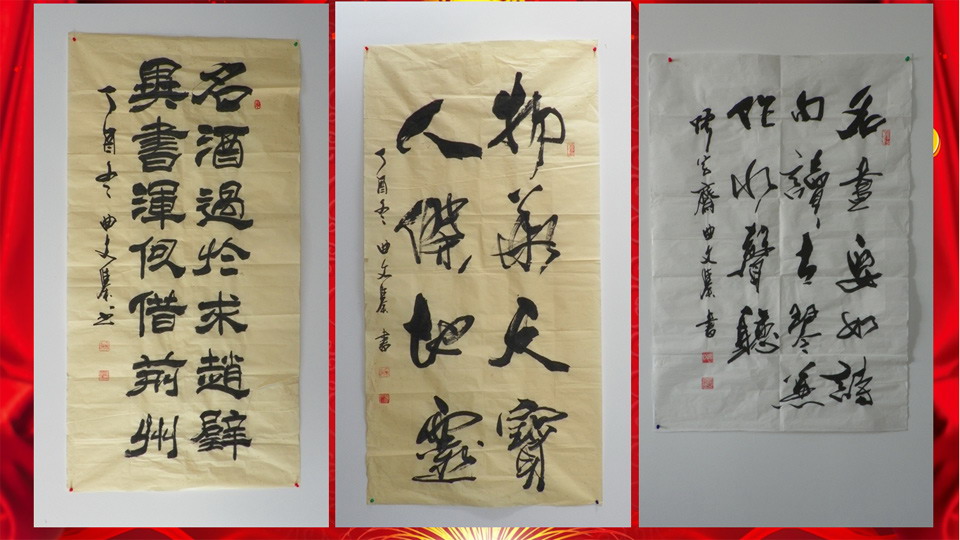 名酒過於求趙璧
異書渾似借荊州
丁酉冬 曲文
物華天寶
人傑地靈
丁酉冬 曲文 書
名畫要如詩
句讀古琴兼
作水聲聽
齋 曲文 書